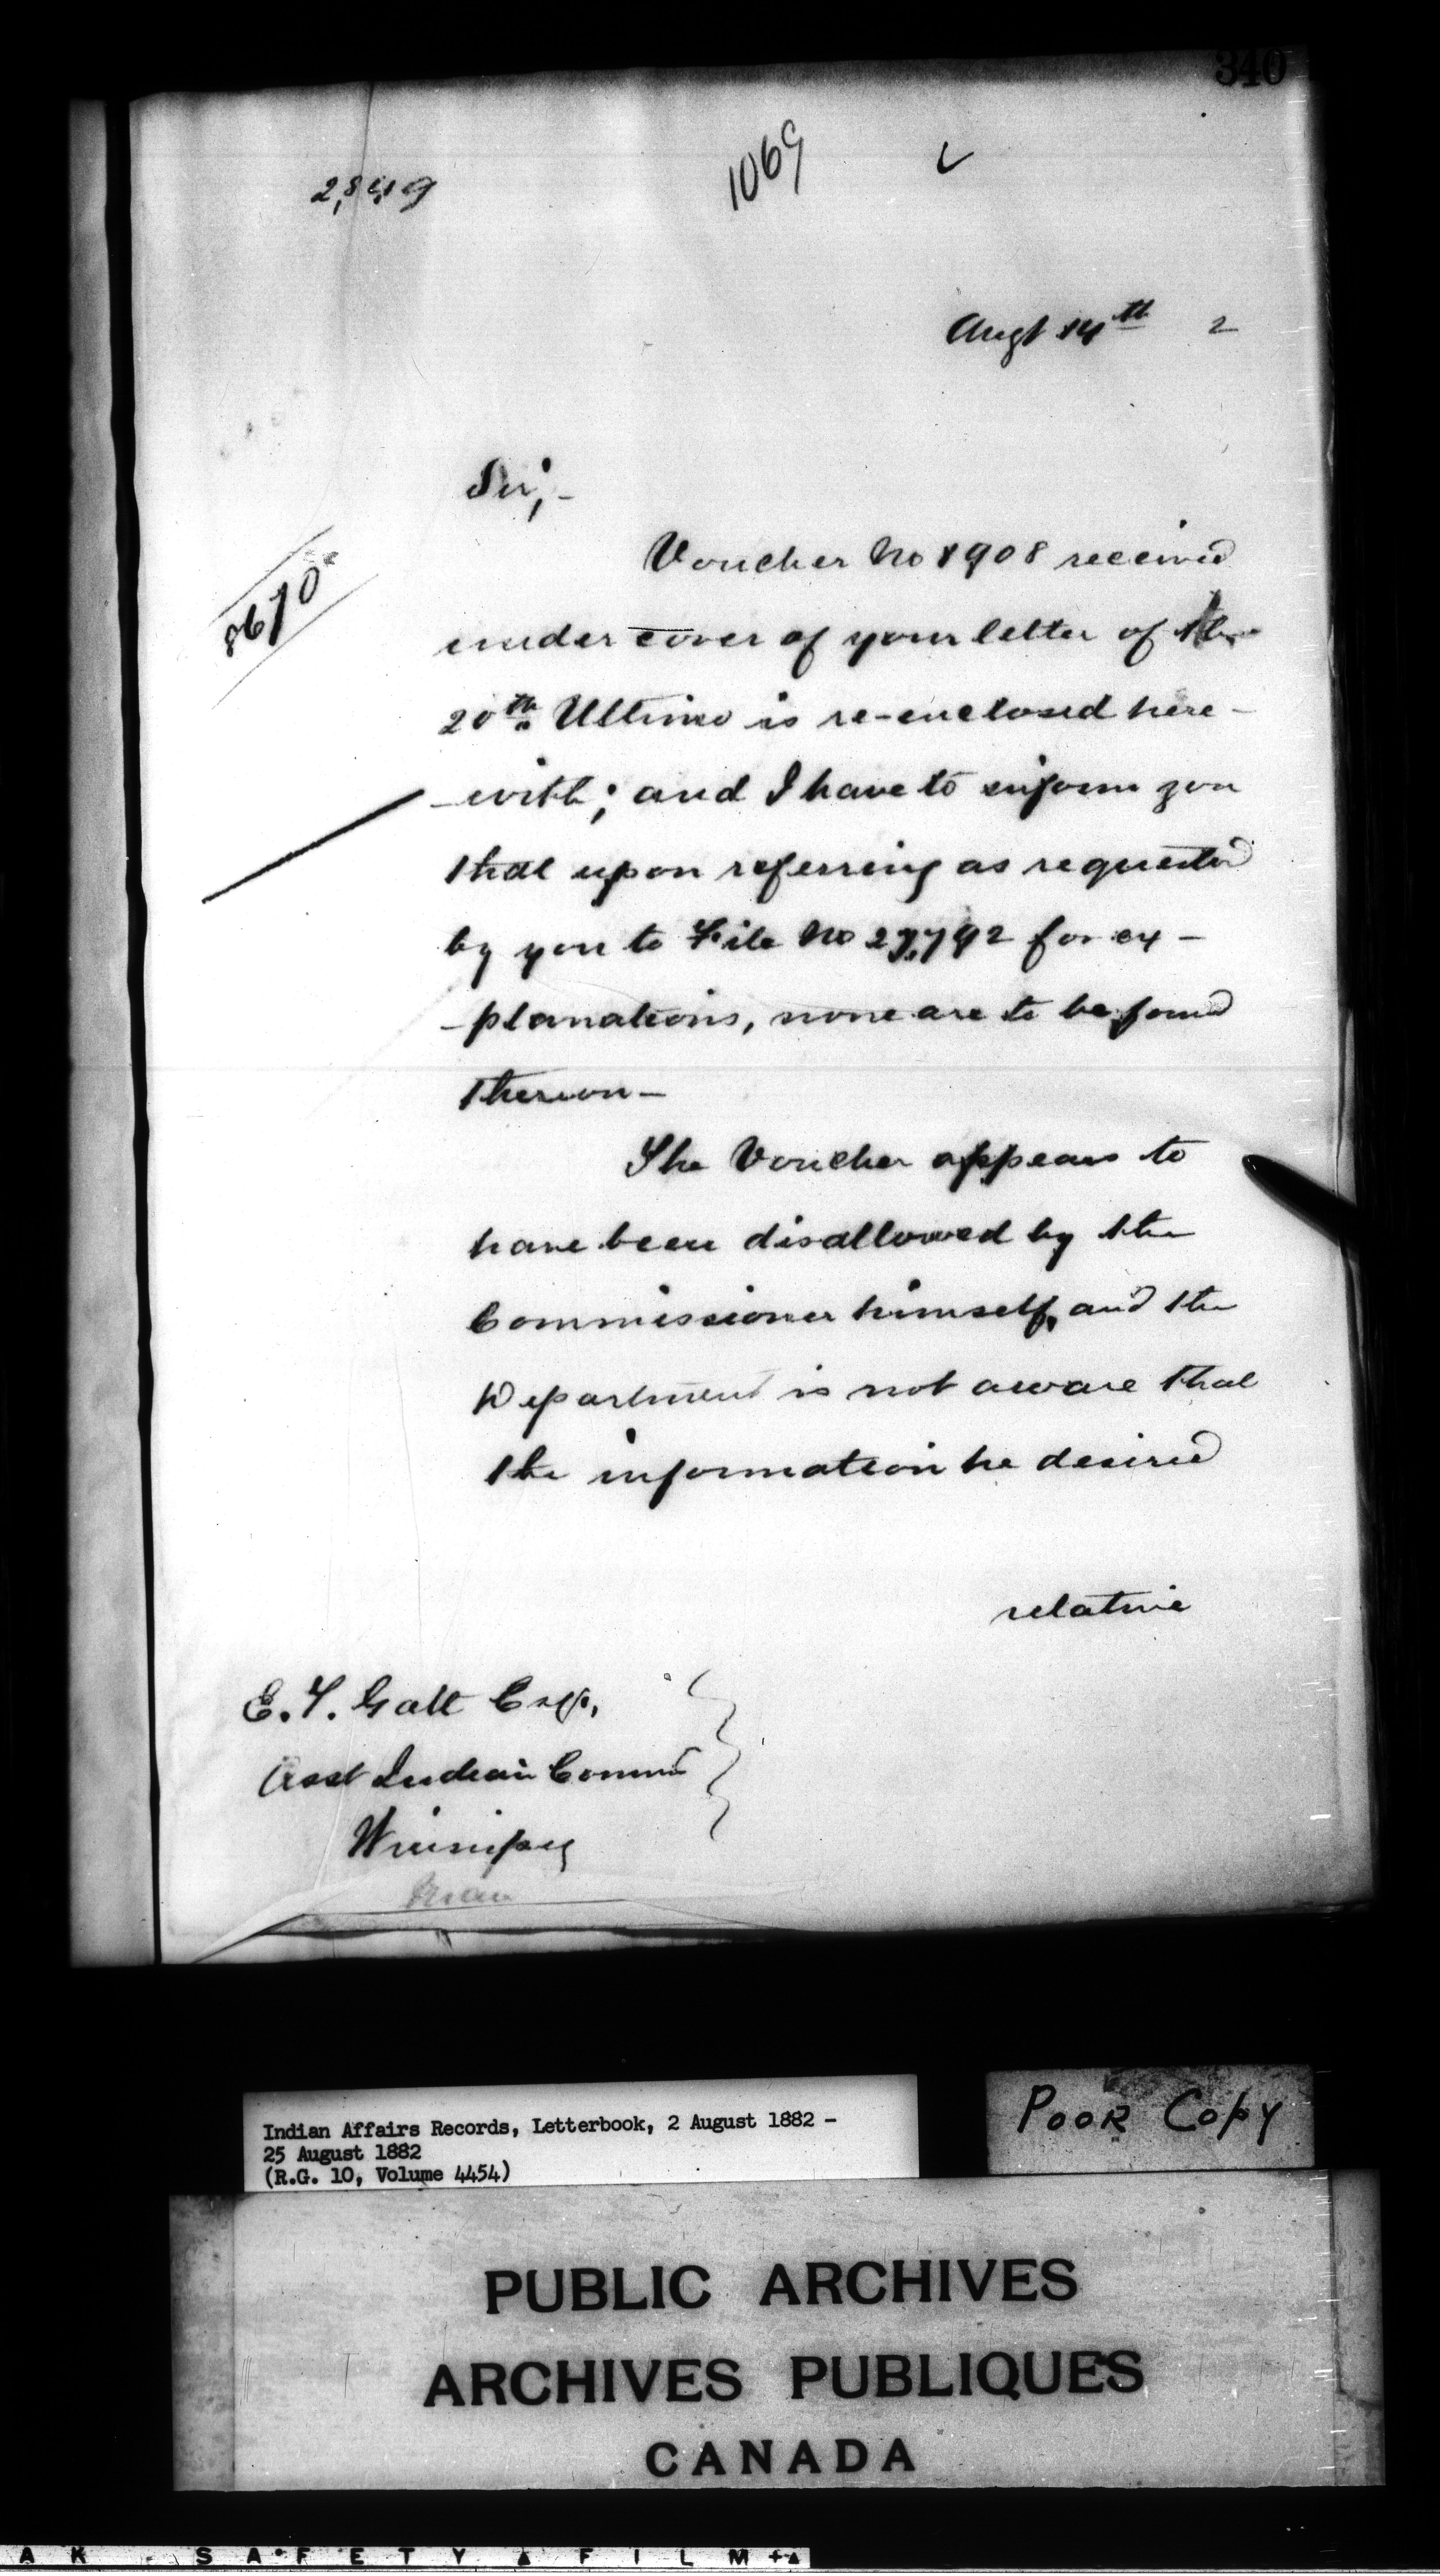 340
1069
Augt 14th 2
Sir;-
8670
Voucher No 1908 received
under cover of your letter of the
20th Ultimo is re-enclosed here-
-with; and I have to inform you
that upon referring as requested
by you to File No 27,792 for ex-
-planations, none are to be found
thereon-
The Voucher appears to
have been disallowed by the
Commissioner himself, and the
Department is not aware that
the information he desired
relative
E. T. Galt Esq.,
Asst Indian Commr
Winnipeg
Man
Indian Affairs Records, Letterbook, 2 August 1882 -
25 August 1882
(R.G. 10, Volume 4454)
POOR COPY
PUBLIC ARCHIVES
ARCHIVES PUBLIQUES
CANADA
A K SAFETY FILM